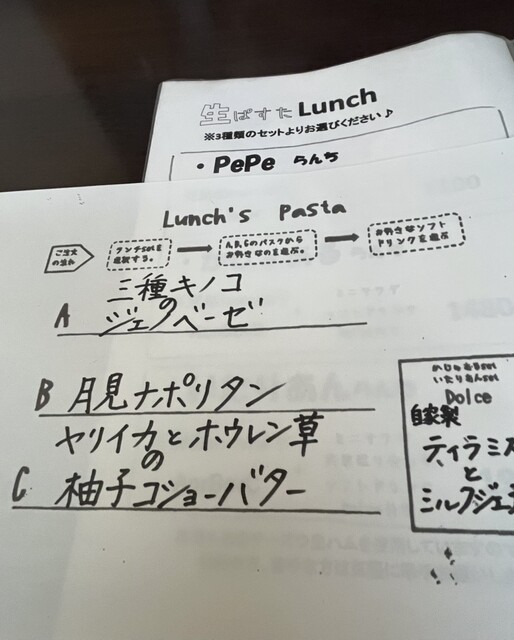 生ぱすた Lunch
※3種類のセットよりお選びください♪
・PePe らんち
Lunch's Pasta
ご注文の流れ
ランチsetを選択する。
A,B,Cのパスタからお好きなのを選ぶ。
お好きなソフトドリンクを選ぶ
A 三種キノコの
ジェノベーゼ
B 月見ナポリタン
C ヤリイカとホウレン草の
柚子コショーバター
かじゅあるset
いたりあんset
Dolce
自家製
ティラミス
と
ミルクジェラ